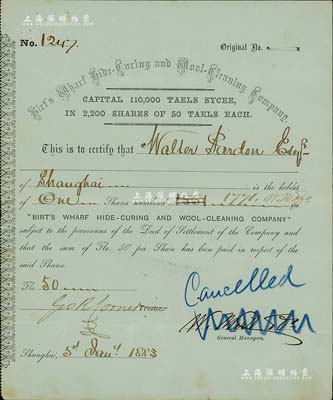 上海陽明拍賣
No. 1247.
Original No.
Birt's Wharf Hide-Curing and Wool-Cleaning Company.
CAPITAL 110,000 TAELS SYCEE,
IN 2,200 SHARES OF 50 TAELS EACH.
This is to certify that Walter Esqr.
of Shanghai is the holder
of One Shares numbered
"BIRT'S WHARF HIDE-CURING AND WOOL-CLEANING COMPANY"
subject to the provisions of the Deed of Settlement of the Company and
that the sum of Tls. 50 per Share has been paid in respect of the
said Shares.
Tls. 50
Cancelled
General Managers.
Shanghai, 5th Jany. 1883
上海陽明拍賣